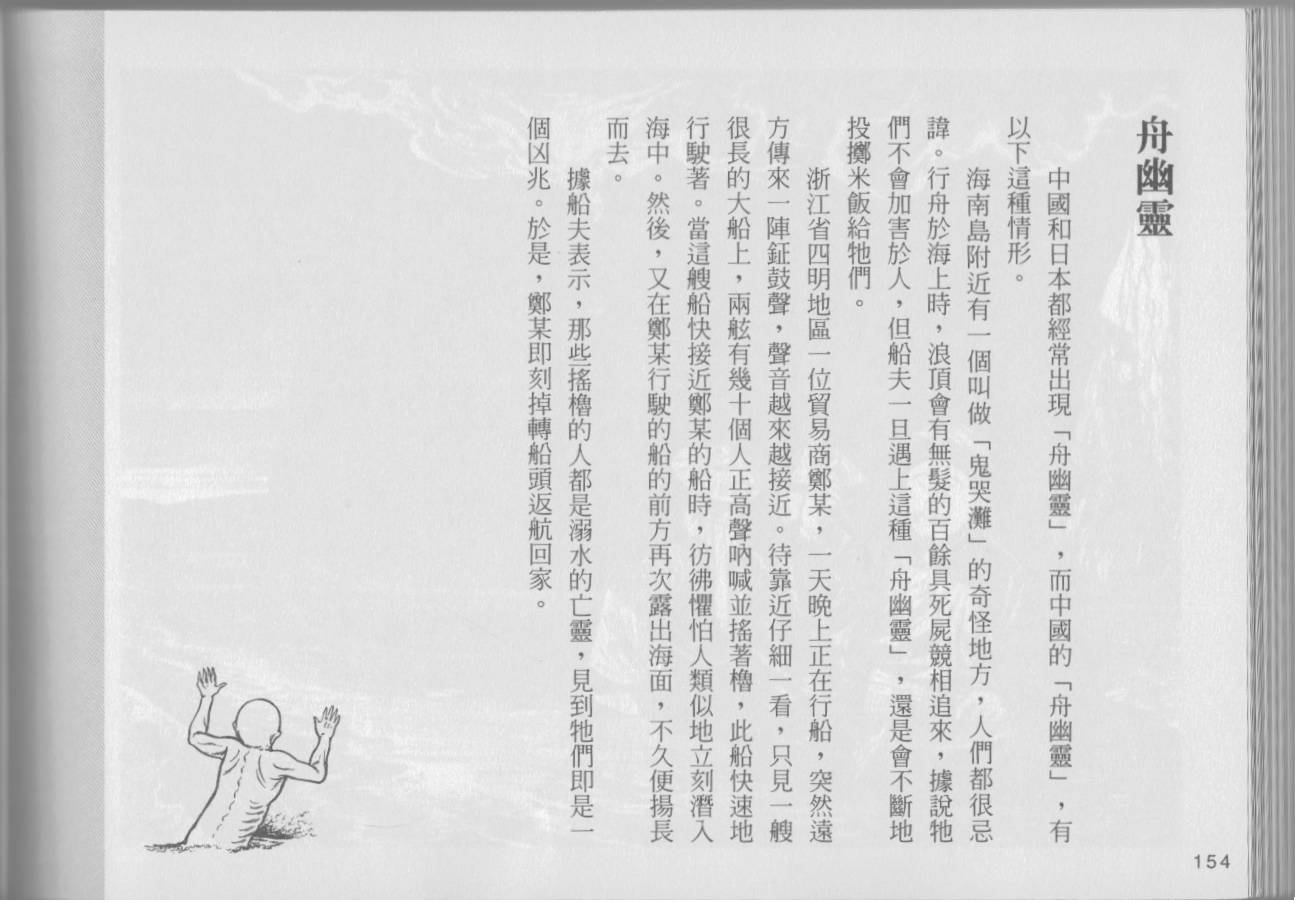 舟幽靈
中國和日本都經常出現「舟幽靈」，而中國的「舟幽靈」，有
以下這種情形。
海南島附近有一個叫做「鬼哭灘」的奇怪地方，人們都很忌
諱。行舟於海上時，浪頂會有無髮的百餘具死屍競相追來，據說牠
們不會加害於人，但船夫一旦遇上這種「舟幽靈」，還是會不斷地
投擲米飯給牠們。
浙江省四明地區一位貿易商鄭某，一天晚上正在行船，突然遠
方傳來一陣鉦鼓聲，聲音越來越接近。待靠近仔細一看，只見一艘
很長的大船上，兩舷有幾十個人正高聲吶喊並搖著櫓，此船快速地
行駛著。當這艘船快接近鄭某的船時，彷彿懼怕人類似地立刻潛入
海中。然後，又在鄭某行駛的船的前方再次露出海面，不久便揚長
而去。
據船夫表示，那些搖櫓的人都是溺水的亡靈，見到牠們即是一
個凶兆。於是，鄭某即刻掉轉船頭返航回家。
154